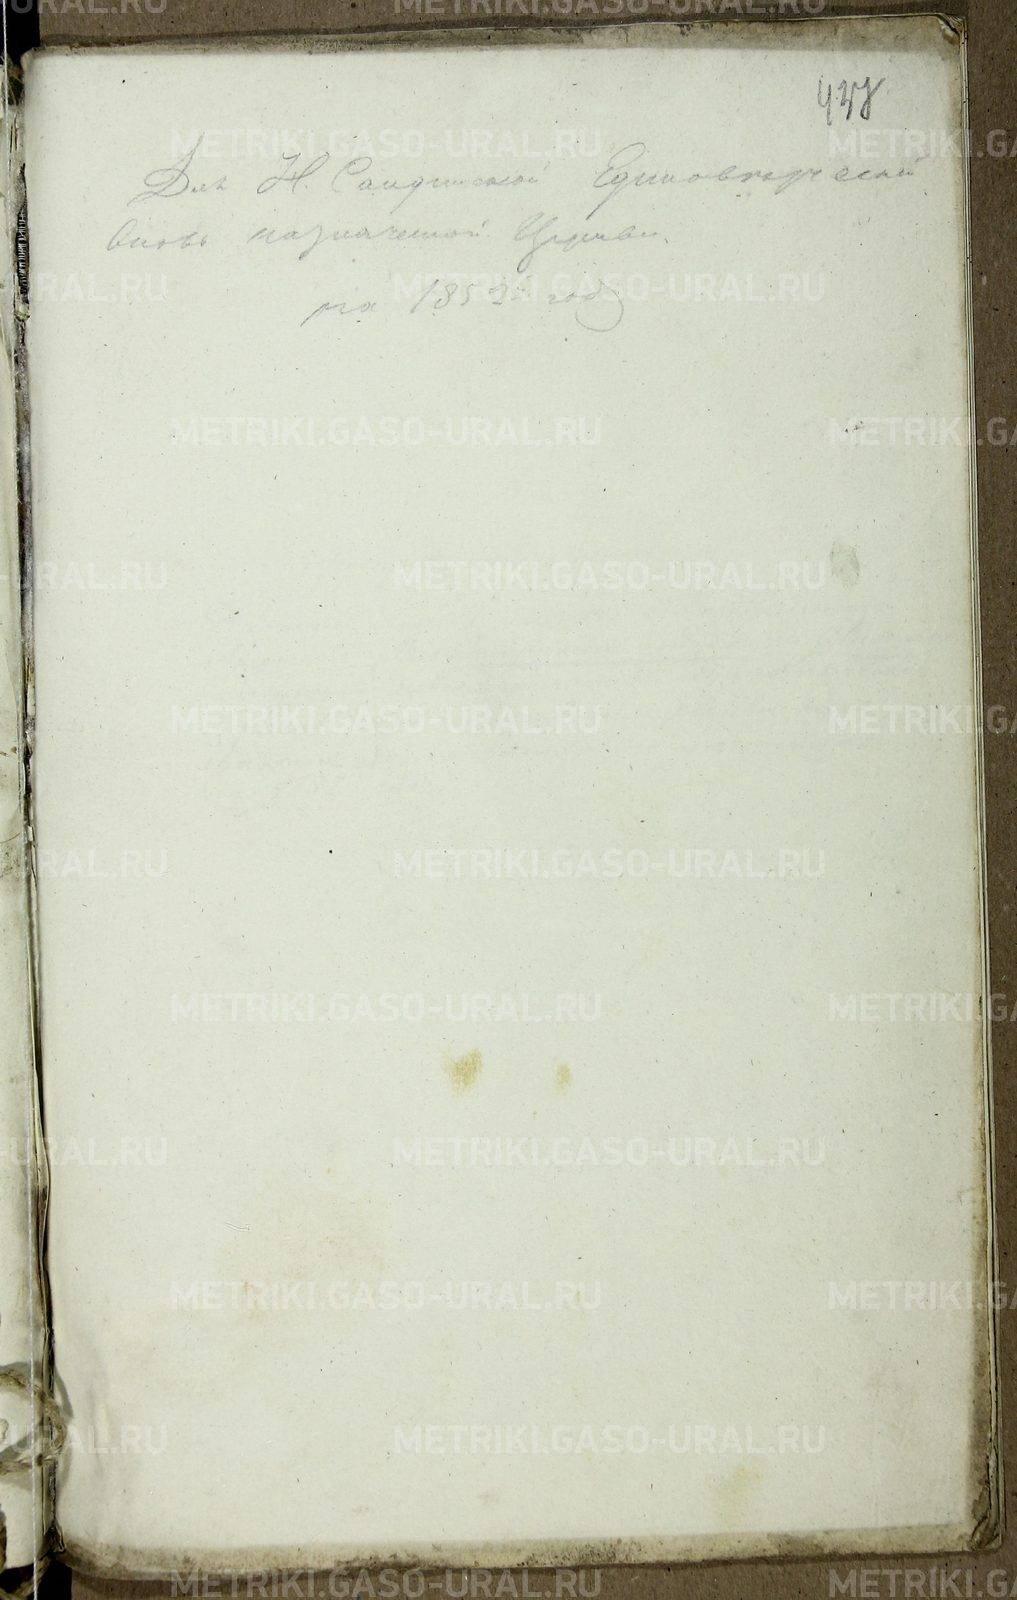 437
Для Н. Салдинской Единоверческой
вновь назначенной Церкви
на 1852 год
METRIKI.GASO-URAL.RU